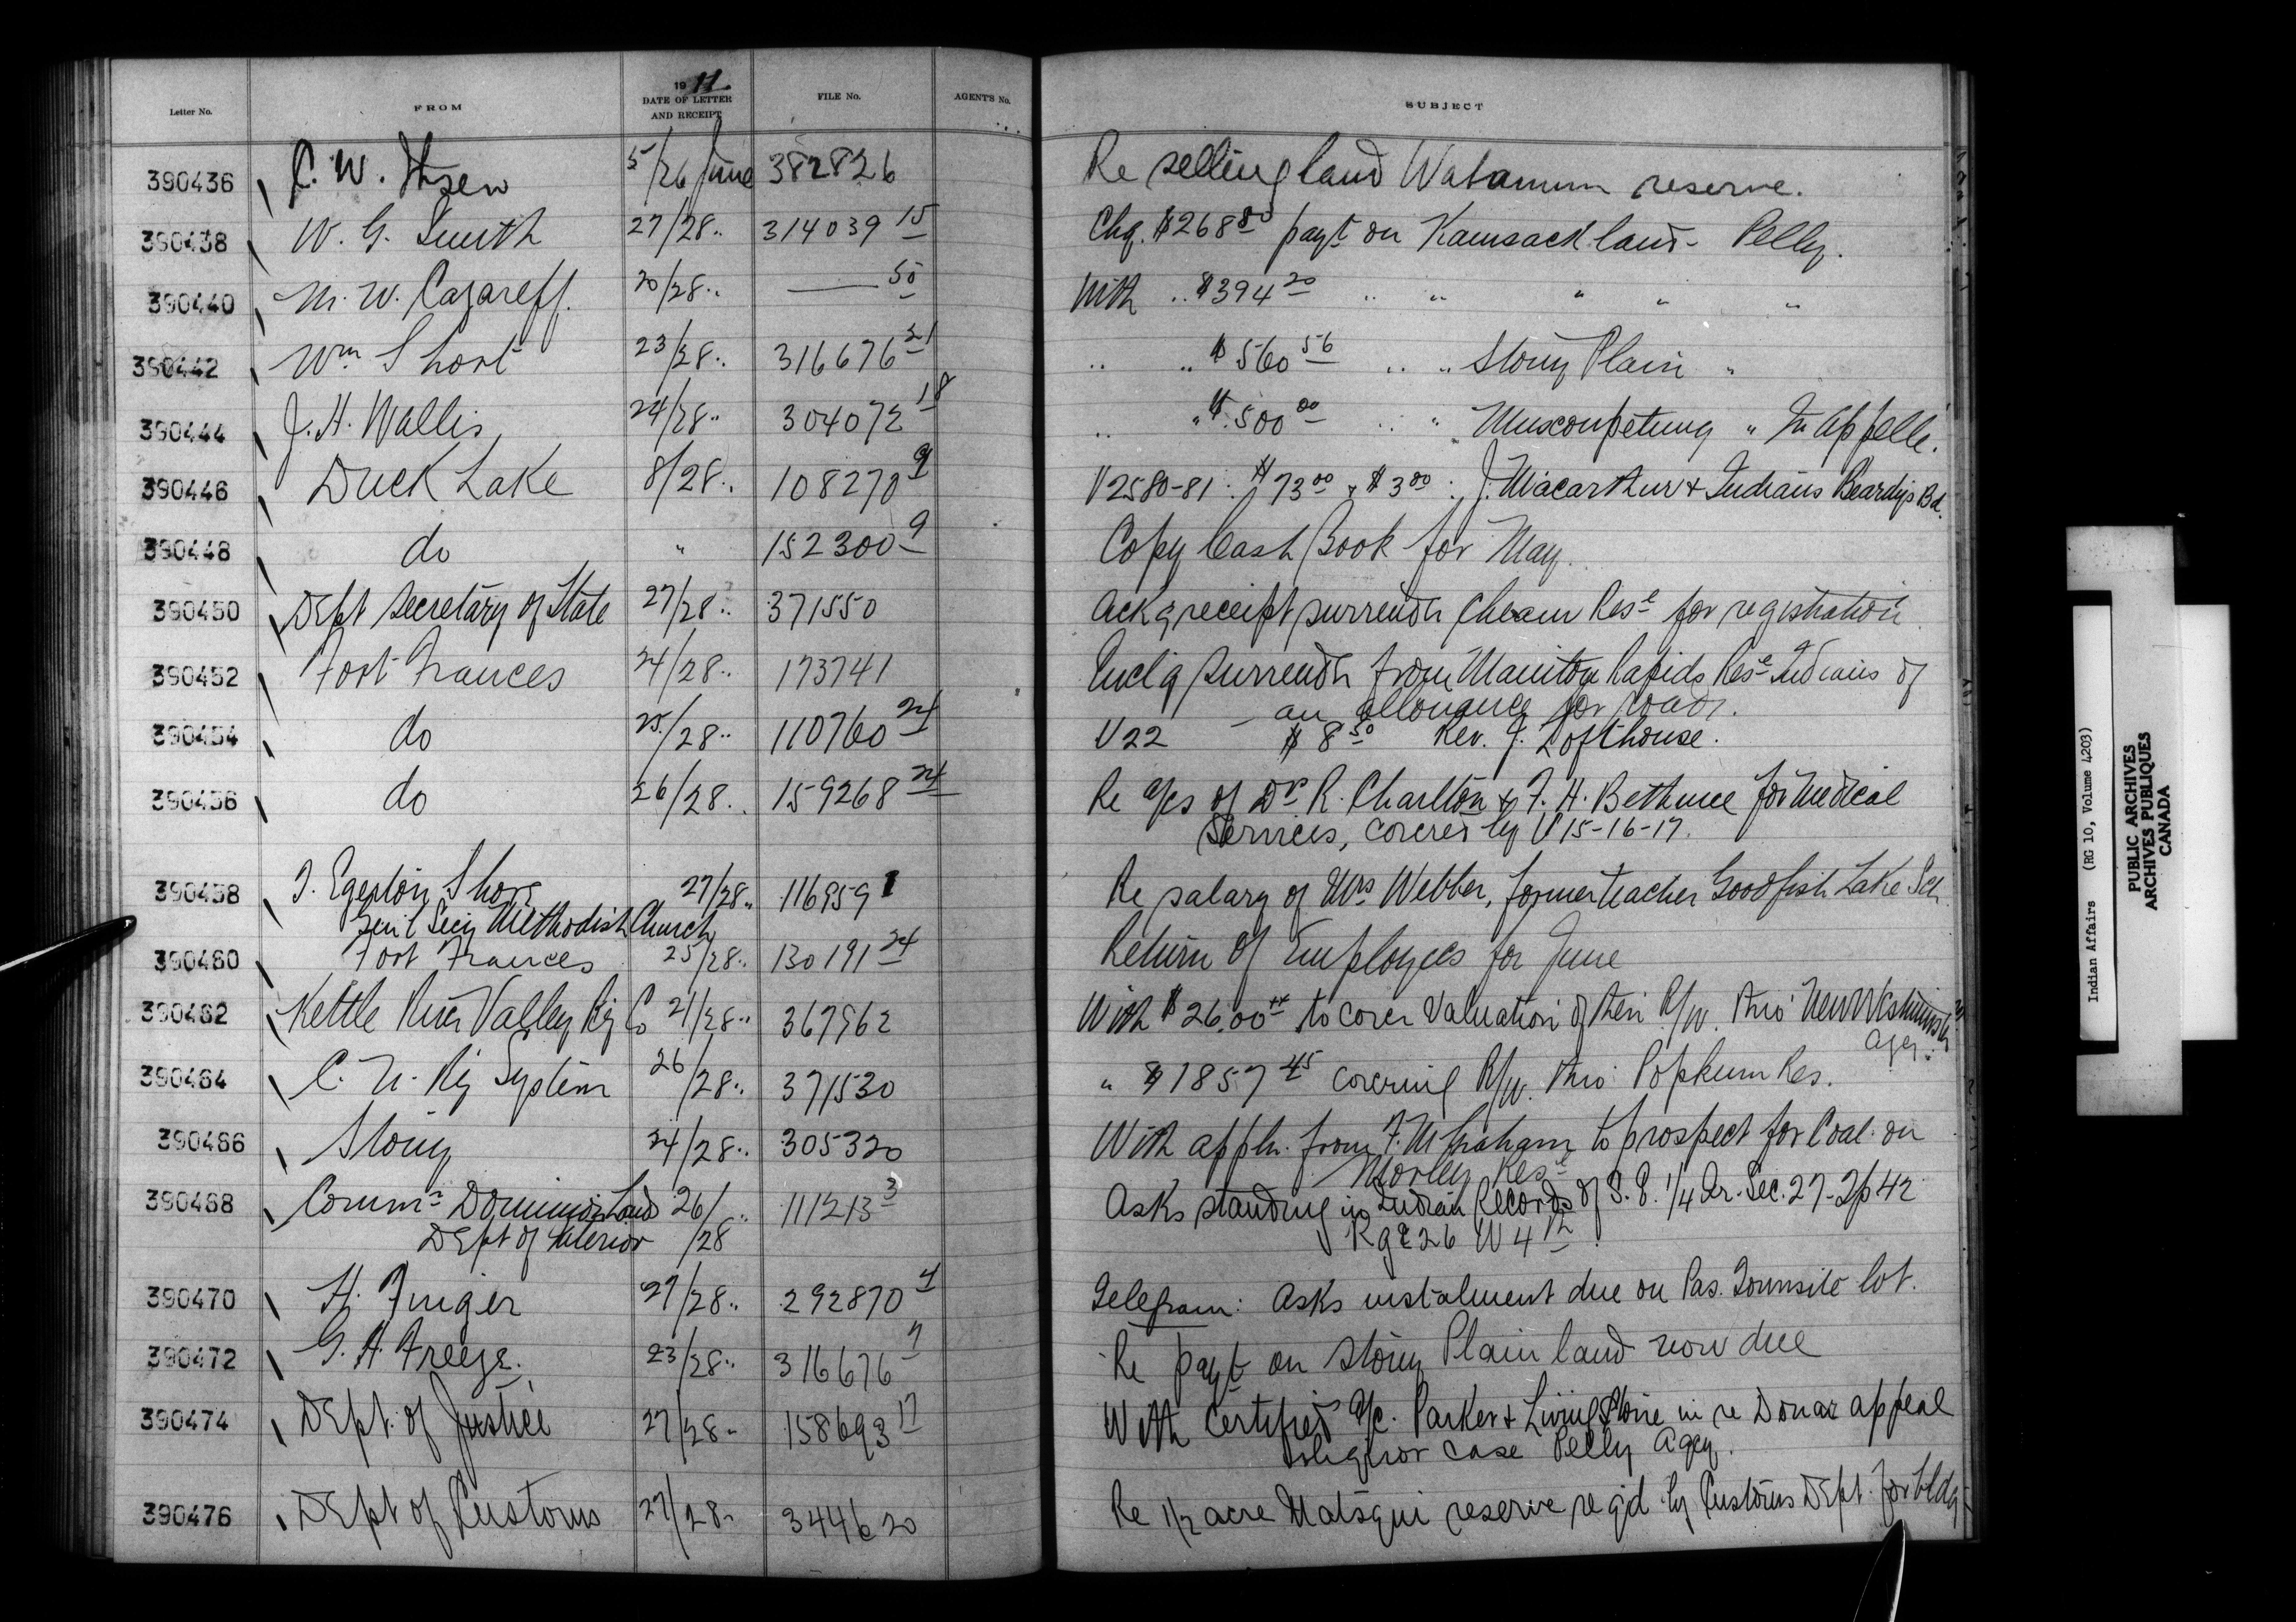 Letter No. FROM 1911 DATE OF LETTER AND RECEIPT FILE No. AGENT'S No. SUBJECT
390436 C. W. 5/26 June 382826 Re selling land Wabamum reserve.
390438 W. G. Smith 27/28 .. 314039 15 Chq. $268 80 payt on Kamsack land - Pelly.
390440 M. W. Cazareff. 20/28 .. —— 50 With .. $394 20 .. .. " " "
390442 Wm Short 23/28 .. 316676 21 .. .. $560 56 .. .. Stony Plain "
390444 J. H. Wallis 24/28 .. 304072 18 .. " $500 00 .. " Muscowpetung " Qu'Appelle.
390446 Duck Lake 8/28 .. 108270 9 V2580-81 : $73 00 & $3 00 : J. Macarthur & Indians Beardys Bd.
390448 do " 152300 9 Copy Cash Book for May.
390450 Dept Secretary of State 27/28 .. 371550 Ackg receipt surrender Cheam Rese for registration
390452 Fort Frances 24/28 .. 173741 Enclg surrender from Manitou Rapids Rese Indians of
an allowance for roads.
390454 do 25/28 .. 110760 24 V22 $8 50 Rev. J. Lofthouse.
390456 do 26/28 .. 159268 24 Re a/cs of Dr R. Charlton & F. H. Bethune for medical
services, covered by V15-16-17.
390458 T. Egerton Shore 27/28 .. 116859 1 Re salary of Mrs Webber, former teacher Goodfish Lake Sch.
Gen'l Secy Methodist Church
390460 Fort Frances 25/28 .. 130191 24 Return of Employees for June
390462 Kettle River Valley Ry Co 21/28 .. 367962 With $26.00 to cover valuation of their R/W. thro' New Westminster
Agcy.
390464 C. N. Ry System 26/28 .. 371530 " $1857 45 covering R/W. thro' Popkum Res.
390466 Stony 24/28 .. 305320 With appln. from F. M Graham to prospect for Coal on
Morley Rese
390468 Commr Dominion Lands 26/ .. 111213 3 Asks standing in Indian Records of S. E. 1/4 Qr. Sec. 27-Tp 42
Dept of Interior /28 Rge 26 W 4th.
390470 H. Finger 27/28 .. 292870 4 Telegram: Asks instalment due on Pas. Townsite lot.
390472 G. A. Freeze. 23/28 .. 316676 7 Re payt on Stony Plain land now due
390474 Dept. of Justice 27/28 .. 158693 17 With certified a/c. Parker & Livingstone in re appeal
liquor case Pelly Agcy.
390476 Dept of Customs 27/28 .. 344620 Re 1/2 acre Matsqui reserve reqd by Customs Dept. for bldg
Indian Affairs (RG 10, Volume 4203)
PUBLIC ARCHIVES
ARCHIVES PUBLIQUES
CANADA